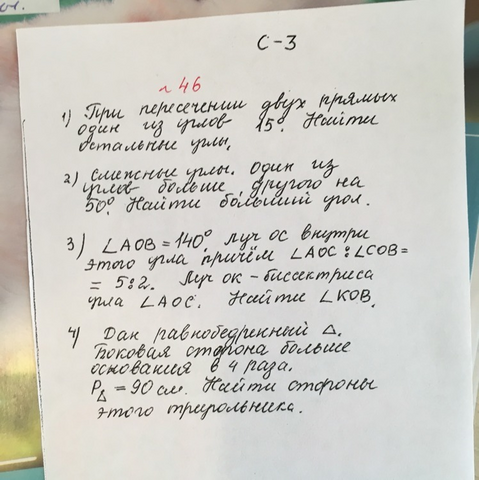 С-3
~46
1) При пересечении двух прямых
один из углов 15°. Найти
остальные углы.
2) Смежные углы. Один из
углов больше другого на
50°. Найти больший угол.
3) ∠AOB = 140°, луч ОС внутри
этого угла причём ∠AOC : ∠COB =
= 5:2. Луч ОК - биссектриса
угла ∠AOC. Найти ∠KOB.
4) Дан равнобедренный △.
Боковая сторона больше
основания в 4 раза.
P△ = 90 см. Найти стороны
этого треугольника.